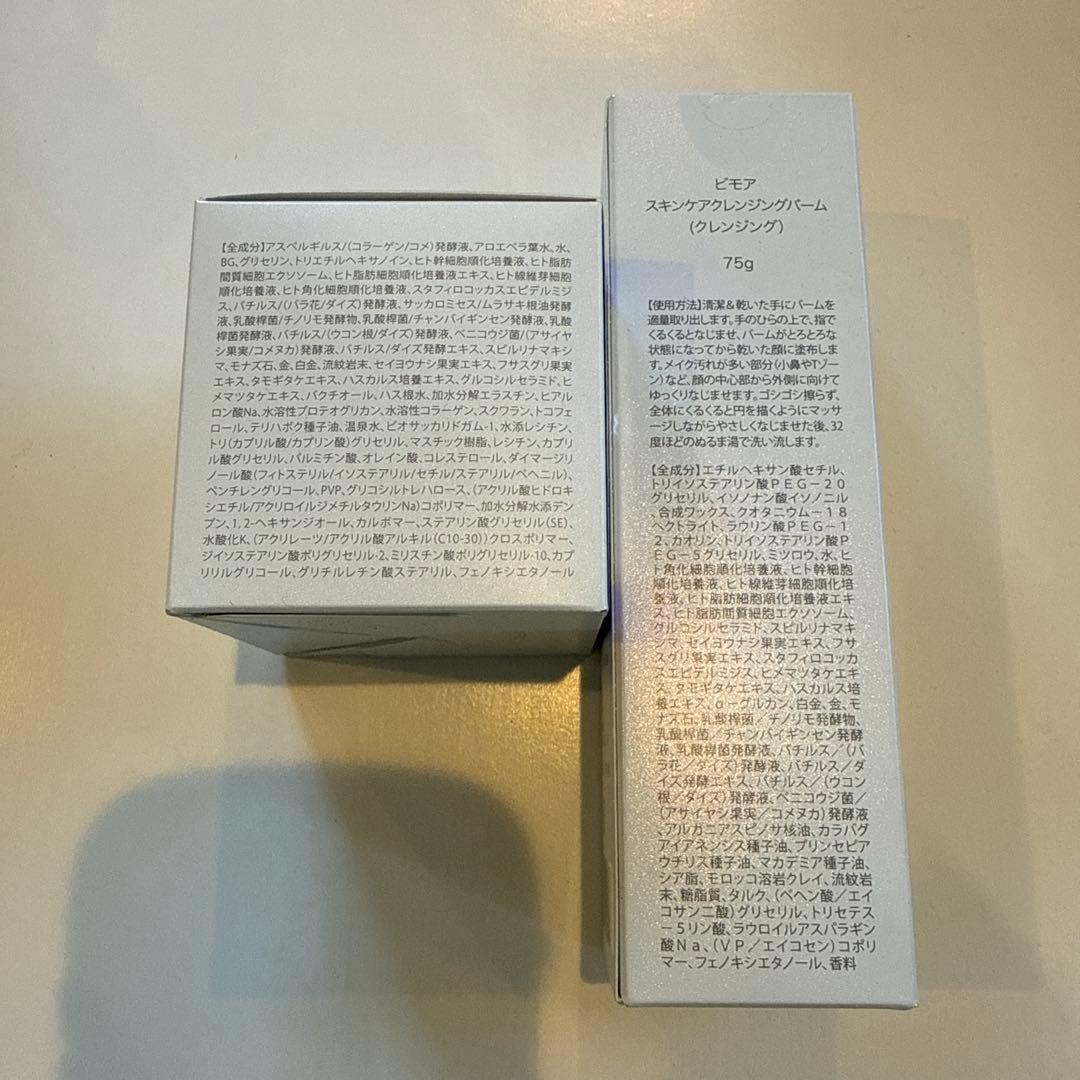 【全成分】アスペルギルス/(コラーゲン/コメ)発酵液、アロエベラ葉水、水、
BG、グリセリン、トリエチルヘキサノイン、ヒト幹細胞順化培養液、ヒト脂肪
間質細胞エクソソーム、ヒト脂肪細胞順化培養液エキス、ヒト線維芽細胞
順化培養液、ヒト角化細胞順化培養液、スタフィロコッカスエピデルミジ
ス、バチルス/(バラ花/ダイズ)発酵液、サッカロミセス/ムラサキ根油発酵
液、乳酸桿菌/チノリモ発酵物、乳酸桿菌/チャンバイギンセン発酵液、乳酸
桿菌発酵液、バチルス/(ウコン根/ダイズ)発酵液、ベニコウジ菌/(アサイヤ
シ果実/コメヌカ)発酵液、バチルス/ダイズ発酵エキス、スピルリナマキシ
マ、モナズ石、金、白金、流紋岩末、セイヨウナシ果実エキス、フサスグリ果実
エキス、タモギタケエキス、ハスカルス培養エキス、グルコシルセラミド、ヒ
メマツタケエキス、バクチオール、ハス根水、加水分解エラスチン、ヒアル
ロン酸Na、水溶性プロテオグリカン、水溶性コラーゲン、スクワラン、トコフェ
ロール、テリハボク種子油、温泉水、ビオサッカリドガム-1、水添レシチン、
トリ(カプリル酸/カプリン酸)グリセリル、マスチック樹脂、レシチン、カプリ
ル酸グリセリル、パルミチン酸、オレイン酸、コレステロール、ダイマージリ
ノール酸(フィトステリル/イソステアリル/セチル/ステアリル/ベヘニル)、
ペンチレングリコール、PVP、グリコシルトレハロース、(アクリル酸ヒドロキ
シエチル/アクリロイルジメチルタウリンNa)コポリマー、加水分解水添デン
プン、1,2-ヘキサンジオール、カルボマー、ステアリン酸グリセリル(SE)、
水酸化K、(アクリレーツ/アクリル酸アルキル(C10-30))クロスポリマー、
ジイソステアリン酸ポリグリセリル-2、ミリスチン酸ポリグリセリル-10、カプ
リリルグリコール、グリチルレチン酸ステアリル、フェノキシエタノール
ビモア
スキンケアクレンジングバーム
(クレンジング)
75g
【使用方法】清潔&乾いた手にバームを
適量取り出します。手のひらの上で、指で
くるくるとなじませ、バームがとろとろな
状態になってから乾いた顔に塗布しま
す。メイク汚れが多い部分(小鼻やTゾー
ン)など、顔の中心部から外側に向けて
ゆっくりなじませます。ゴシゴシ擦らず、
全体にくるくると円を描くようにマッサ
ージしながらやさしくなじませた後、32
度ほどのぬるま湯で洗い流します。
【全成分】エチルヘキサン酸セチル、
トリイソステアリン酸PEG-20
グリセリル、イソノナン酸イソノニル
、合成ワックス、クオタニウム-18
ヘクトライト、ラウリン酸PEG-1
2、カオリン、トリイソステアリン酸P
EG-5グリセリル、ミツロウ、水、ヒ
ト角化細胞順化培養液、ヒト幹細胞
順化培養液、ヒト線維芽細胞順化培
養液、ヒト脂肪細胞順化培養液エキ
ス、ヒト脂肪間質細胞エクソソーム、
グルコシルセラミド、スピルリナマキ
シマ、セイヨウナシ果実エキス、フサ
スグリ果実エキス、スタフィロコッカ
スエピデルミジス、ヒメマツタケエキ
ス、タモギタケエキス、ハスカルス培
養エキス、α-グルカン、白金、金、モ
ナズ石、乳酸桿菌/チノリモ発酵物、
乳酸桿菌/チャンバイギンセン発酵
液、乳酸桿菌発酵液、バチルス/(バ
ラ花/ダイズ)発酵液、バチルス/ダ
イズ発酵エキス、バチルス/(ウコン
根/ダイズ)発酵液、ベニコウジ菌/
(アサイヤシ果実/コメヌカ)発酵液
、アルガニアスピノサ核油、カラパグ
アイアネンシス種子油、プリンセピア
ウチリス種子油、マカデミア種子油、
シア脂、モロッコ溶岩クレイ、流紋岩
末、糖脂質、タルク、(ベヘン酸/エイ
コサン二酸)グリセリル、トリセテス
-5リン酸、ラウロイルアスパラギン
酸Na、(VP/エイコセン)コポリ
マー、フェノキシエタノール、香料